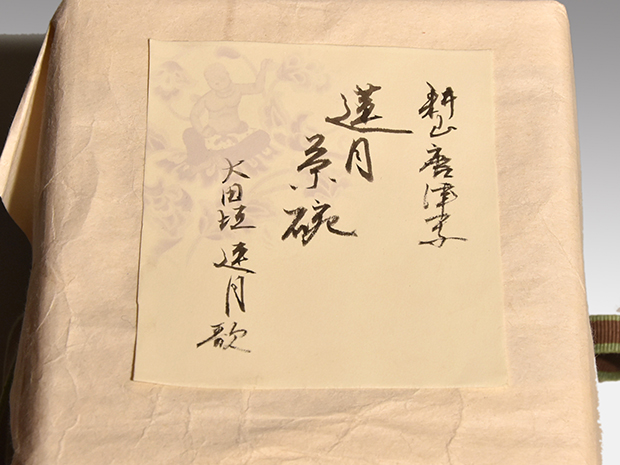 耕山唐津素
蓮月
茶碗
大田垣 蓮月 歌